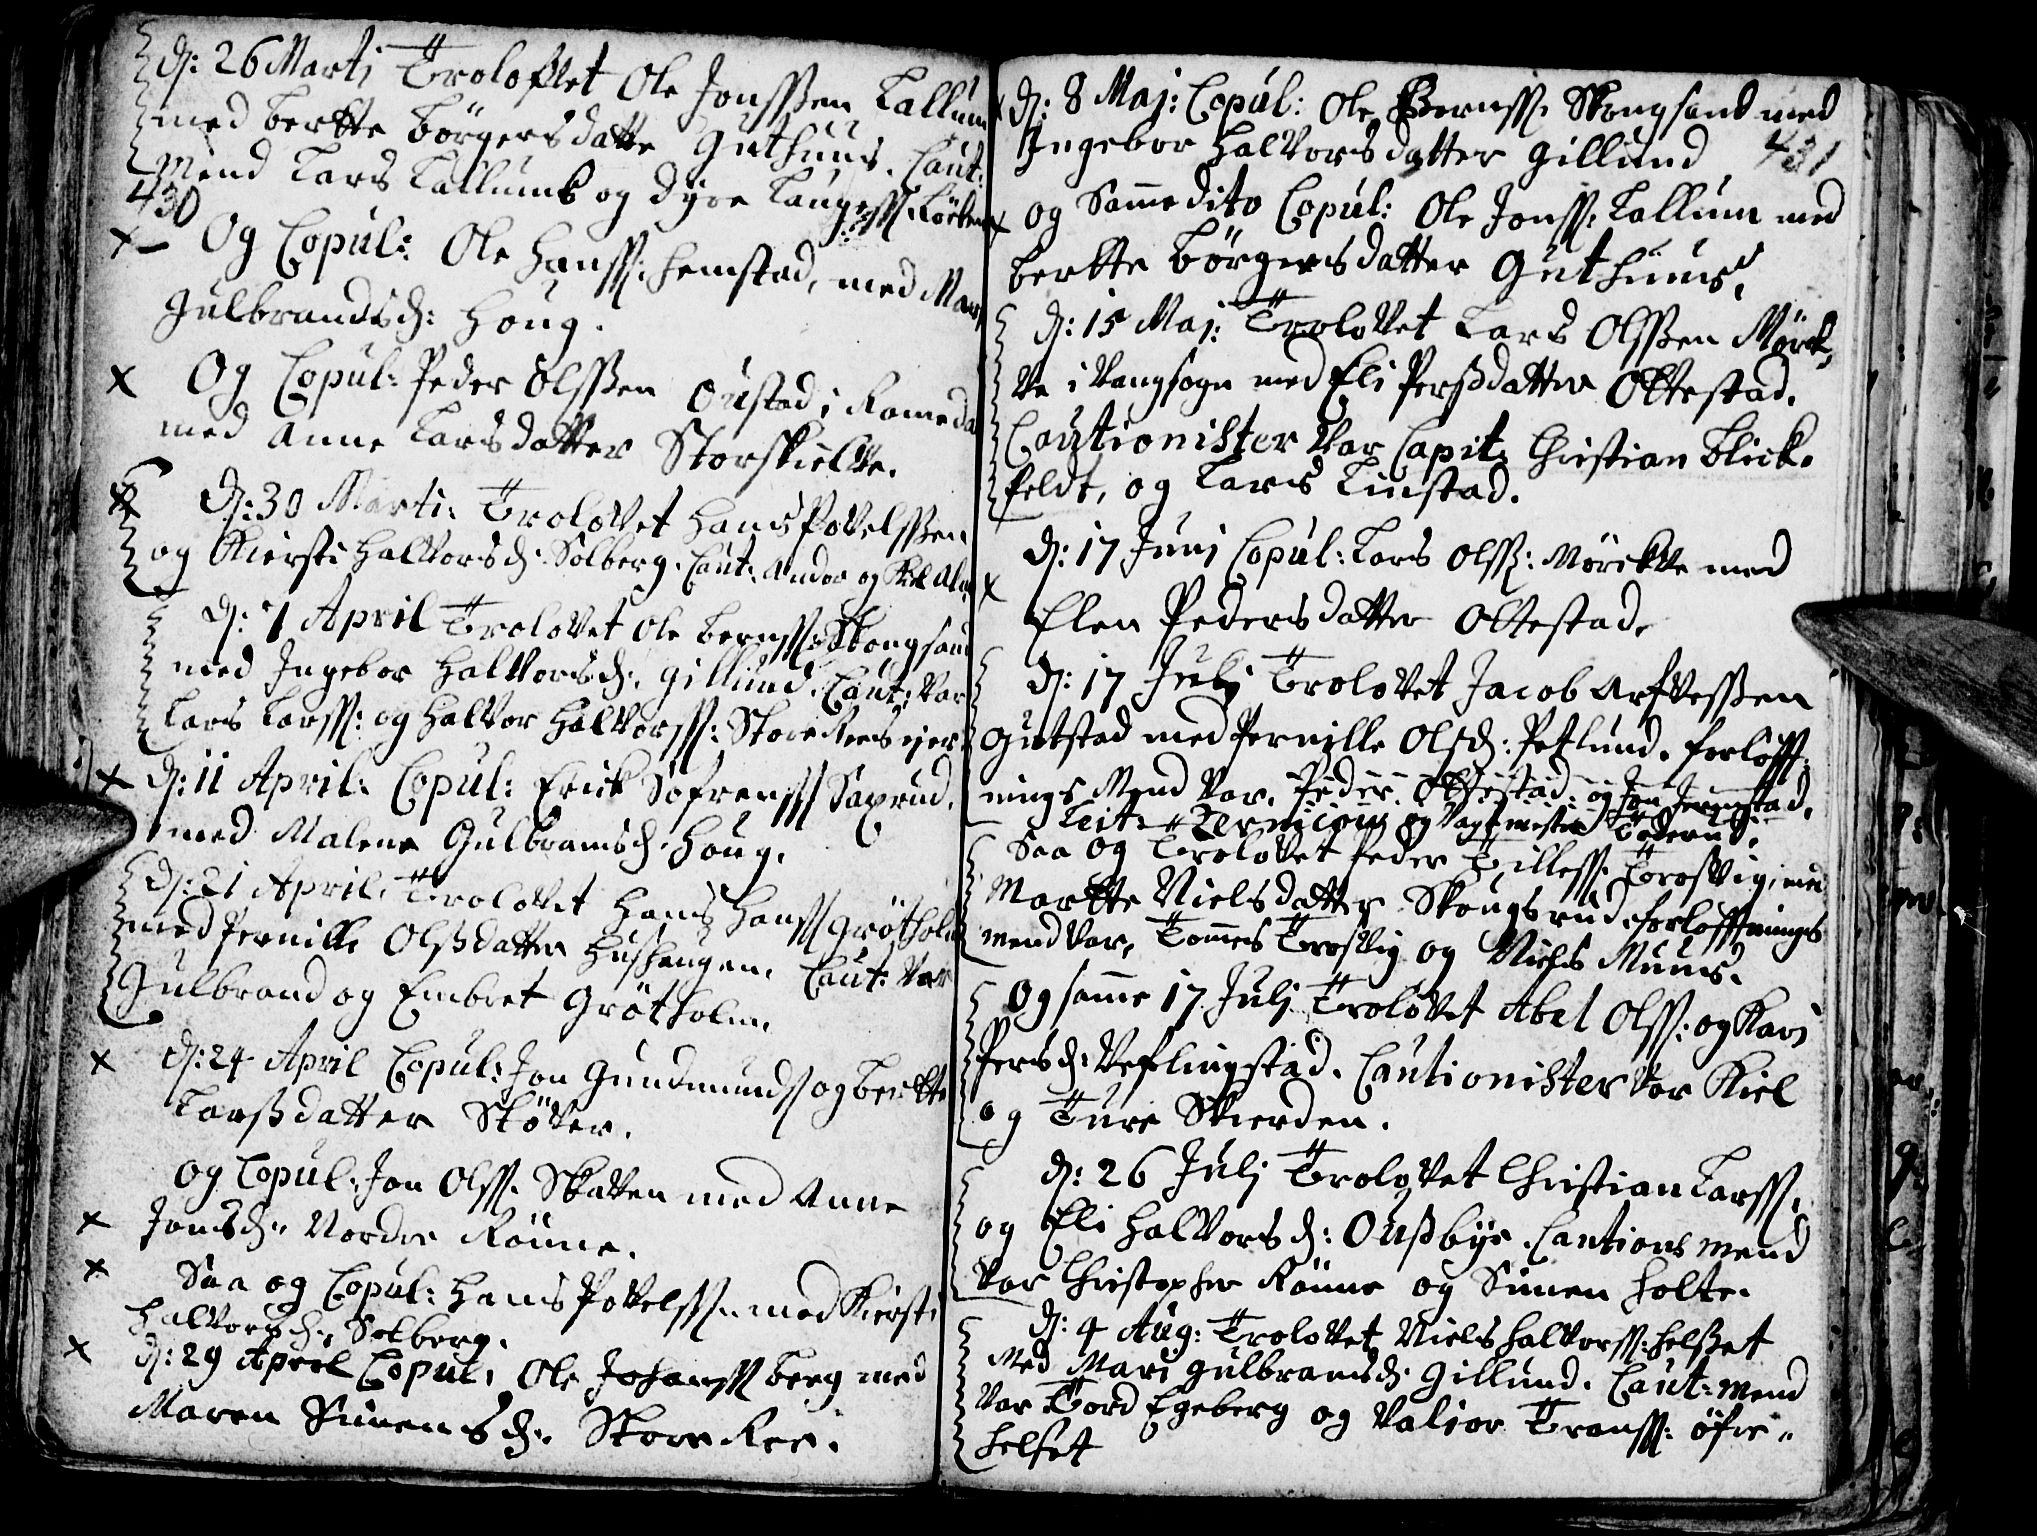 d: 26 Marti Troloflet Ole Jonssen Kallum
med Berthe Börgersdatter Guthuus. Caut:
mend Lars Kallumb og Dyre
430
Og Copul: Ole Hanss: Hemstad, med Mari
Gulbrandsd: Houg.
Og Copul: Peder Olssen Oustad i Romeda
med Anne Larsdatter Storskielve.
d: 30 Marti: Trolovet Hans Povelssen
og Kiersti Halvorsd: Solberg. Caut: Amdor og
d: 7 April Trolovet Ole Bernss: Skougsand
med Ingebor Halvorsd: Gillund. Caut: var
Lars Larss: og Halvor Halvorss: Store
d: 11 April: Copul: Erick Sofrenss Saxrud,
med Malene Gulbransd: Houg.
d: 21 April: Trolovet Hans Hanss Grötholm
med Pernille Olssdatter Hushengen. Caut: var
Gulbrand og Embret Grötholm.
d: 24 April Copul: Jon Gundmunds og Berthe
Larssdatter Stöver.
og Copul: Jon Olss: Skatten med Anne
Jonsd: Nordre Rönne.
Saa og Copul: Hans Povelss: med Kiersti
Halvorsd: Solberg.
d: 29 April Copul: Ole Johanss Berg med
Maren Simensd: Store Ree.
d: 8 Maj: Copul: Ole Bernss: Skougsand med
Ingebor Halvorsdatter Gillund 431
og Samme dito Copul: Ole Jonss: Kallum med
Berthe Börgersdatter Guthuus.
d: 15 Maj: Trolovet Lars Olssen Mörck
ve i Vangsogn med Eli Perssdatter Ottestad.
Cautionister var Capit: Christian Blick
feldt, og Lars Linstad.
d: 17 Junj Copul: Lars Olss: Mörckve med
Elen Pedersdatter Ottestad.
d: 17 Julj Trolovet Jacob Arfvessen
Gutstad med Pernille Olsd: Petlund. Forloff
nings Mend var, Peder Ottestad: og Jon Jermstad.
Leit: og Vagtmester
Saa og Trolovet Peder Tilless: Frosvig, med
Marthe Nielsdatter Skougsrud. Forloffnings
mend var, Tommes Frosvig og Niels Muus.
Og samme 17 Julj Trolovet Abel Olss: og Kari
Persd: Veflingstad. Cautionister var Kiel
og Ture Skierden.
d: 26 Julj Trolovet Christian Larss:
og Eli Halvorsd: Oussbye. Cautions mend
var Christopher Rönne og Simen Holte.
d: 4 Aug: Trolovet Niels Halvorss: Helsset
Med Mari Gulbransd: Gillund. Caut: mend
var Tord Egeberg og Valior Transs: öfre
Helset